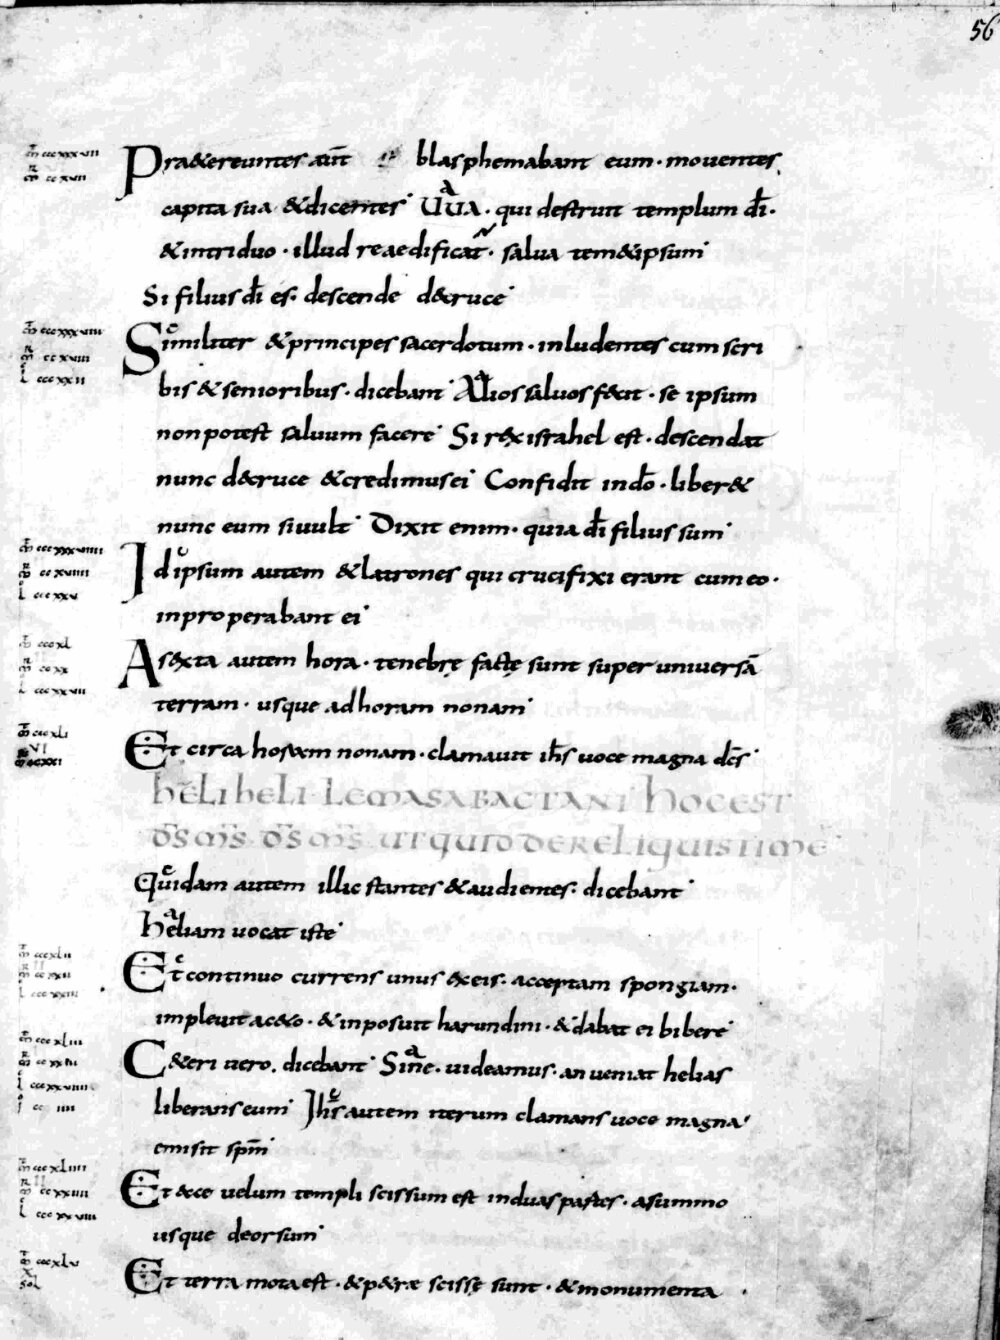 56
Praetereuntes aut̄ blasphemabant eum · mouentes
capita sua &dicentes UUA · qui destruit templum dī ·
&intriduo · illud reaedificat · salua tem&ipsum
Si filius dī es · descende d&cruce
Similiter &principes sacerdotum · inludentes cum scri
bis & senioribus · dicebant Alios saluos fecit · se ipsum
non potest saluum facere Si rex israhel est · descendat
nunc d&cruce &credimus ei Confidit indō · liber&
nunc eum siuult Dixit enim · quia dī filius sum
Id ipsum autem &latrones qui crucifixi erant cum eo ·
inproperabant ei
A sexta autem hora · tenebrę factę sunt super uniuersā
terram · usque ad horam nonam
Et circa horam nonam · clamauit ihs̄ uoce magna dcs̄
heli heli lema sabactani hoc est
ds̄ ms̄ ds̄ ms̄ ut quid dereliquisti me
Quidam autem illic stantes &audientes · dicebant
heliam uocat iste
Et continuo currens unus &x eis · acceptam spongiam ·
impleuit ac&o · &inposuit harundini · &dabat ei bibere
C&eri uero . dicebant Sine · uideamus · an ueniat helias
liberans eum Ihs̄ autem iterum clamans uoce magna
emisit spm̄
Et ecce uelum templi scissum est induas partes · asummo
usque deorsum
Et terra mota est · &p&ræ scissę sunt · &monumenta